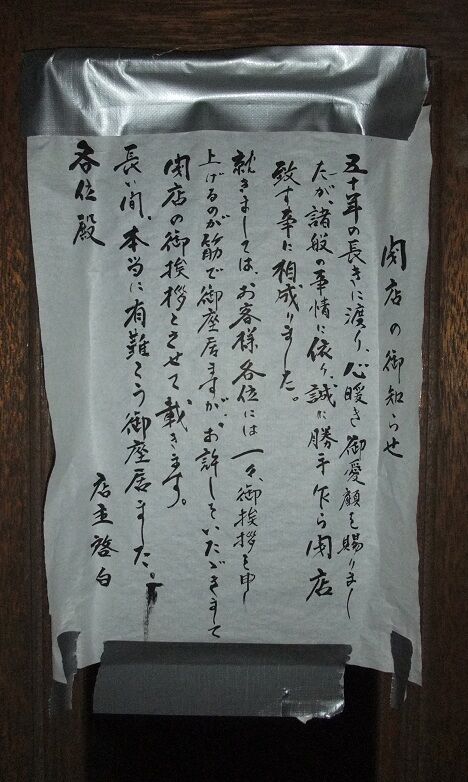 閉店の御知らせ
五十年の長きに渡り、心暖き御愛顧を賜りまし
たが、諸般の事情に依り、誠に勝手乍ら閉店
致す事に相成りました。
就きましては、お客様各位には一々、御挨拶を申し
上げるのが筋で御座居ますが、お許しをいただきまして
閉店の御挨拶とさせて戴きます。
長い間、本当に有難とう御座居ました。
店主啓白
各位殿